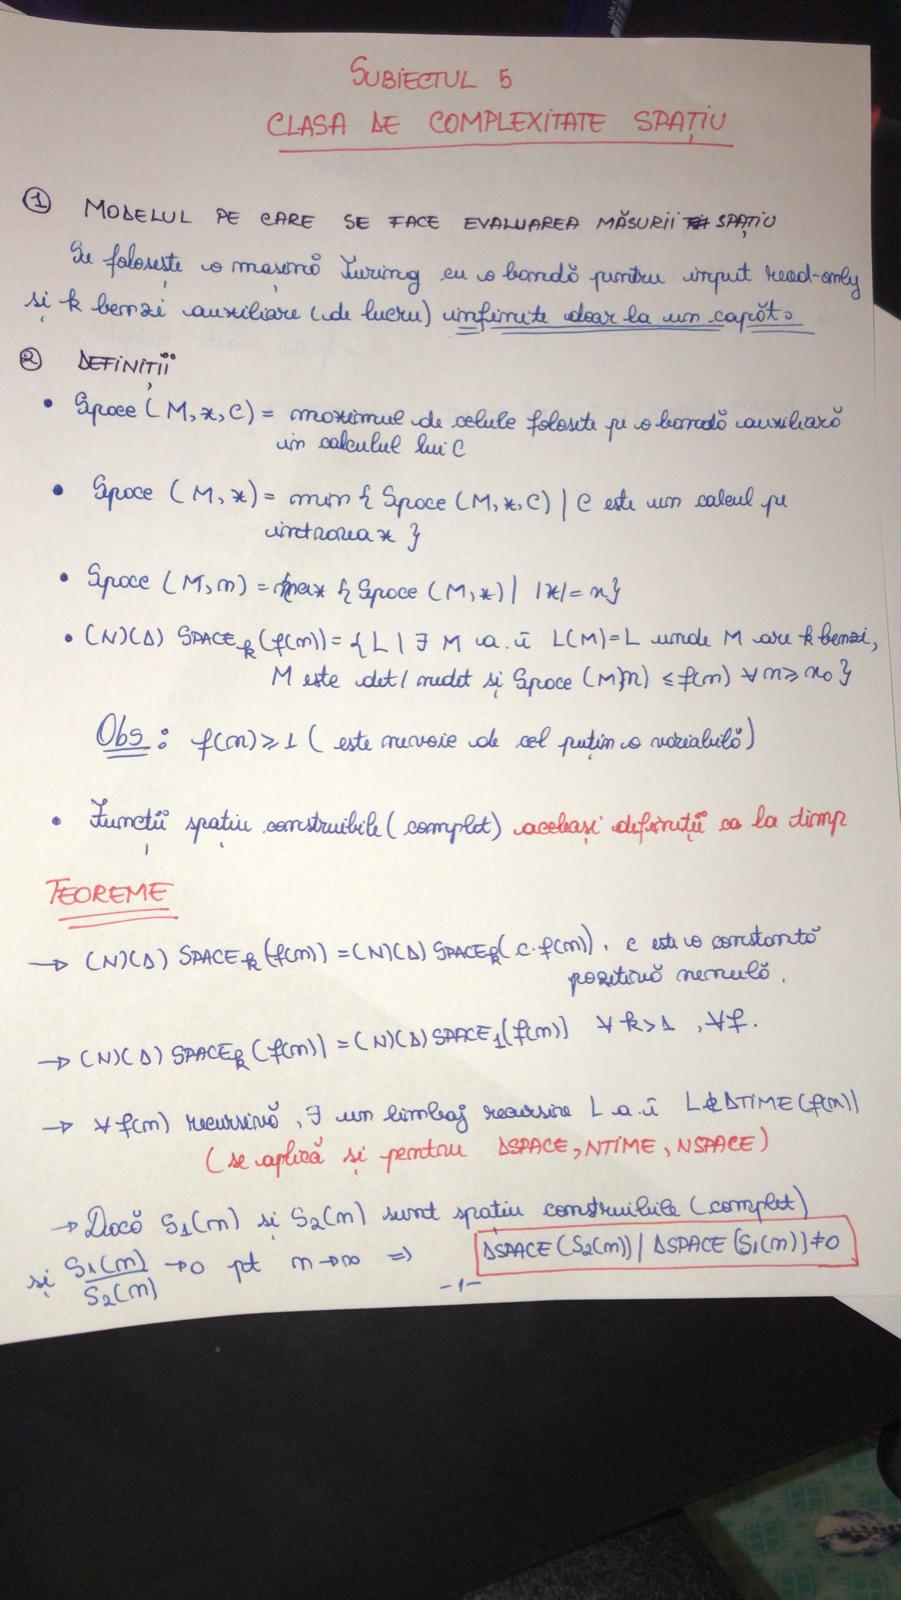 SUBIECTUL 5
CLASA DE COMPLEXITATE SPAȚIU
① MODELUL PE CARE SE FACE EVALUAREA MĂSURII SPAȚIU
Se folosește o mașină Turing cu o bandă pentru input read-only
și k benzi auxiliare (de lucru) infinite doar la un capăt.
② DEFINIȚII
• Space (M, x, C) = maximul de celule folosite pe o bandă auxiliară
în calculul lui C
• Space (M, x) = min { Space (M, x, C) | C este un calcul pe
intrarea x }
• Space (M, n) = max { Space (M, x) | |x| = n }
• (N)(Δ) SPACE_k (f(n)) = { L | ∃ M a. î L(M) = L unde M are k benzi,
M este det / nedet și Space (M, n) ≤ f(n) ∀ n ≥ n₀ }
Obs : f(n) ≥ 1 ( este nevoie de cel puțin o variabilă )
• Funcții spațiu construibile ( complet ) aceleași definiții ca la timp
TEOREME
→ (N)(Δ) SPACE_k (f(n)) = (N)(Δ) SPACE_k ( c · f(n)) , c este o constantă
pozitivă nenulă .
→ (N)(Δ) SPACE_k (f(n)) = (N)(Δ) SPACE₁ (f(n)) ∀ k > 1 , ∀ f .
→ ∀ f(n) recursivă , ∃ un limbaj recursive L a. î L ∉ ΔTIME (f(n))
( se aplică și pentru ΔSPACE , NTIME , NSPACE )
→ Dacă S₁(n) și S₂(n) sunt spațiu construibile ( complet )
și S₁(n) / S₂(n) → 0 pt n → ∞ => ΔSPACE (S₂(n)) | ΔSPACE (S₁(n)) ≠ 0
-1-